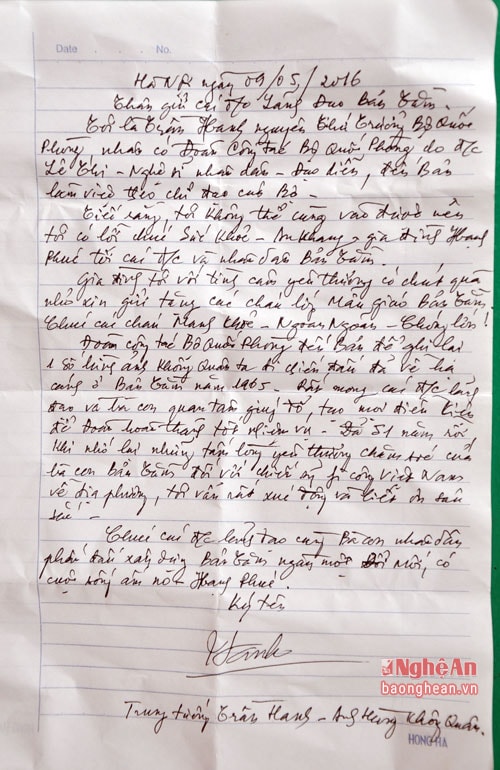 Date . . . No.
Hà Nội ngày 09/05/2016
Thân gửi các đ/c Lãng Đạo Bản Tằm.
Tôi là Trần Hanh nguyên Thứ Trưởng Bộ Quốc
Phòng nhân có Đoàn Công tác Bộ Quốc Phòng do đ/c
Lê Thi - Nghệ sĩ nhân dân - Đạo diễn, đến Bản
làm việc theo chỉ đạo của Bộ.
Tiếc rằng tôi không thể cùng vào được nên
tôi có lời chúc Sức Khoẻ - An Khang, gia đình Hạnh
Phúc tới các đ/c và nhân dân Bản Tằm.
Gia đình tôi với tình cảm yêu thương có chút quà
nhỏ xin gửi tặng các cháu lớp Mẫu giáo Bản Tằm.
Chúc các cháu Mạnh Khoẻ - Ngoan Ngoan - Chóng lớn!
Đoàn công tác Bộ Quốc Phòng đến Bản để ghi lại
1 số hình ảnh Không Quân ta đi chiến đấu đã về hạ
cánh ở Bản Tằm năm 1965 - Rất mong các đ/c lãng
đạo và bà con quan tâm giúp đỡ, tạo mọi điều kiện
để Đoàn hoàn thành tốt nhiệm vụ - Đã 51 năm rồi
khi nhớ lại những tấm lòng yêu thương của
bà con Bản Tằm đối với chiến sỹ phi công Việt Nam
về địa phương, tôi vẫn rất xúc động và biết ơn sâu
sắc -
Chúc các đ/c lãng đạo cùng Bà con nhân dân
phấn đấu xây dựng Bản Tằm ngày một đổi mới, có
cuộc sống ấm no - Hạnh Phúc.
Ký tên
Hanh
Nghệ An
baonghean.vn
Trung tướng Trần Hanh - Anh Hùng Không Quân.
HONG HA